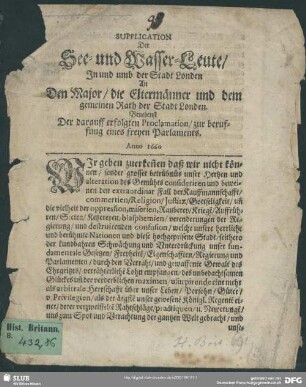 SUPPLICATION
Der
See- und Wasser-Leute/
In und umb der Stadt Londen
An
Den Major/ die Eltermänner und dem
gemeinen Rath der Stadt Londen.
Benebenst
Der darauff erfolgten Proclamation/ zur beruf-
fung eines freyen Parlaments.
Anno 1660
Wir geben zuerkennen daß wir nicht kön-
nen/ sonder grosser betrübnüs unser Hertzen und
alteration des Gemühts consideriren und beweinen
den extraordinar Fall der Kauffmannschafft/
commertien/ Religion/ Justitz/ Gottseligkeit/
die vielheit der oppression, Rauberey/ Kriegs/ Auffrüh-
ren/ Secten/ Ketzereyen/ blasphemien/ veränderungen der Re-
gierung/ und destruirenden confusion/ welche unsere herrliche
und berühmte Nationen und diese hochgepriesene Stadt/ seithero
der kundbahren Schwächung und Unterdrückung unser Funda-
mentale Gesetzen/ Freyheit/ Eigenschafften/ Regierung und
Parlamenten/ durch den Verraht/ und gewaffnete Gewalt des
Ehrgeitzes/ verrähterliche Lohn empfangen/ des unbedachtsamen
Glückes und der verderblichen
als arbitrale Herrschafft über unser Leben/ Persohn/ Güter/
Privilegien/ als der ärgste unser gewesene Königl. Regent
ner/ derer verzweiffelte Rahtschläge/ practiquen/ u. Neuerung/
uns zum Spot und Verachtung der gantzen Welt gebracht/ und
unse-
Hist. Britann.
B.
432,36